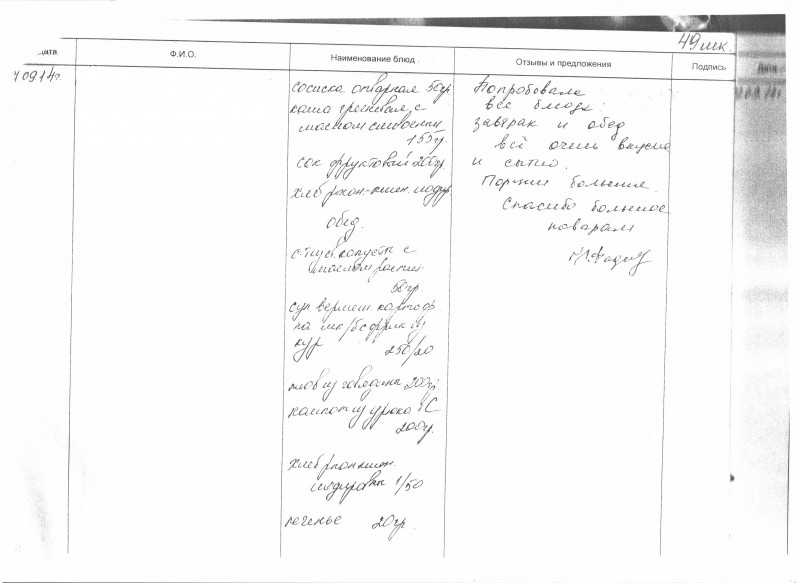 49 шк.
дата
Ф.И.О.
Наименование блюд
Отзывы и предложения
Подпись
Дата
09.14г
сосиска отварная 50гр.
каша гречневая с
маслом сливочным
155г.
сок фруктовый 200гр.
хлеб ржан-пшен. йодир.
обед.
капусты с
маслом растит.
50гр
суп вермеш. картоф
на мк/б с фрик из
кур 250/20
плов из говядины 200гр
компот из урюка +С
200гр.
хлеб ржан пшен.
йодирован 1/50
печенье 20гр.
Попробовала
все блюда:
завтрак и обед
всё очень вкусно
и сытно.
Порции большие.
Спасибо большое
поварам